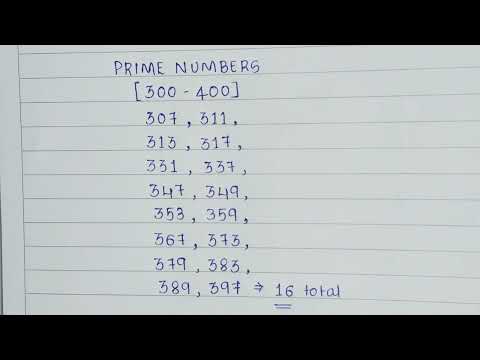 PRIME NUMBERS
[300 - 400]
307, 311,
313, 317,
331, 337,
347, 349,
353, 359,
367, 373,
379, 383,
389, 397 → 16 total